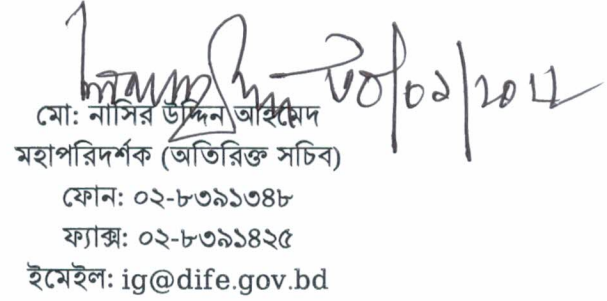 ৩০/০১/২০২২
মো: নাসির উদ্দিন আহমেদ
মহাপরিদর্শক (অতিরিক্ত সচিব)
ফোন: ০২-৮৩৯১৩৪৮
ফ্যাক্স: ০২-৮৩৯১৪২৫
ইমেইল: ig@dife.gov.bd